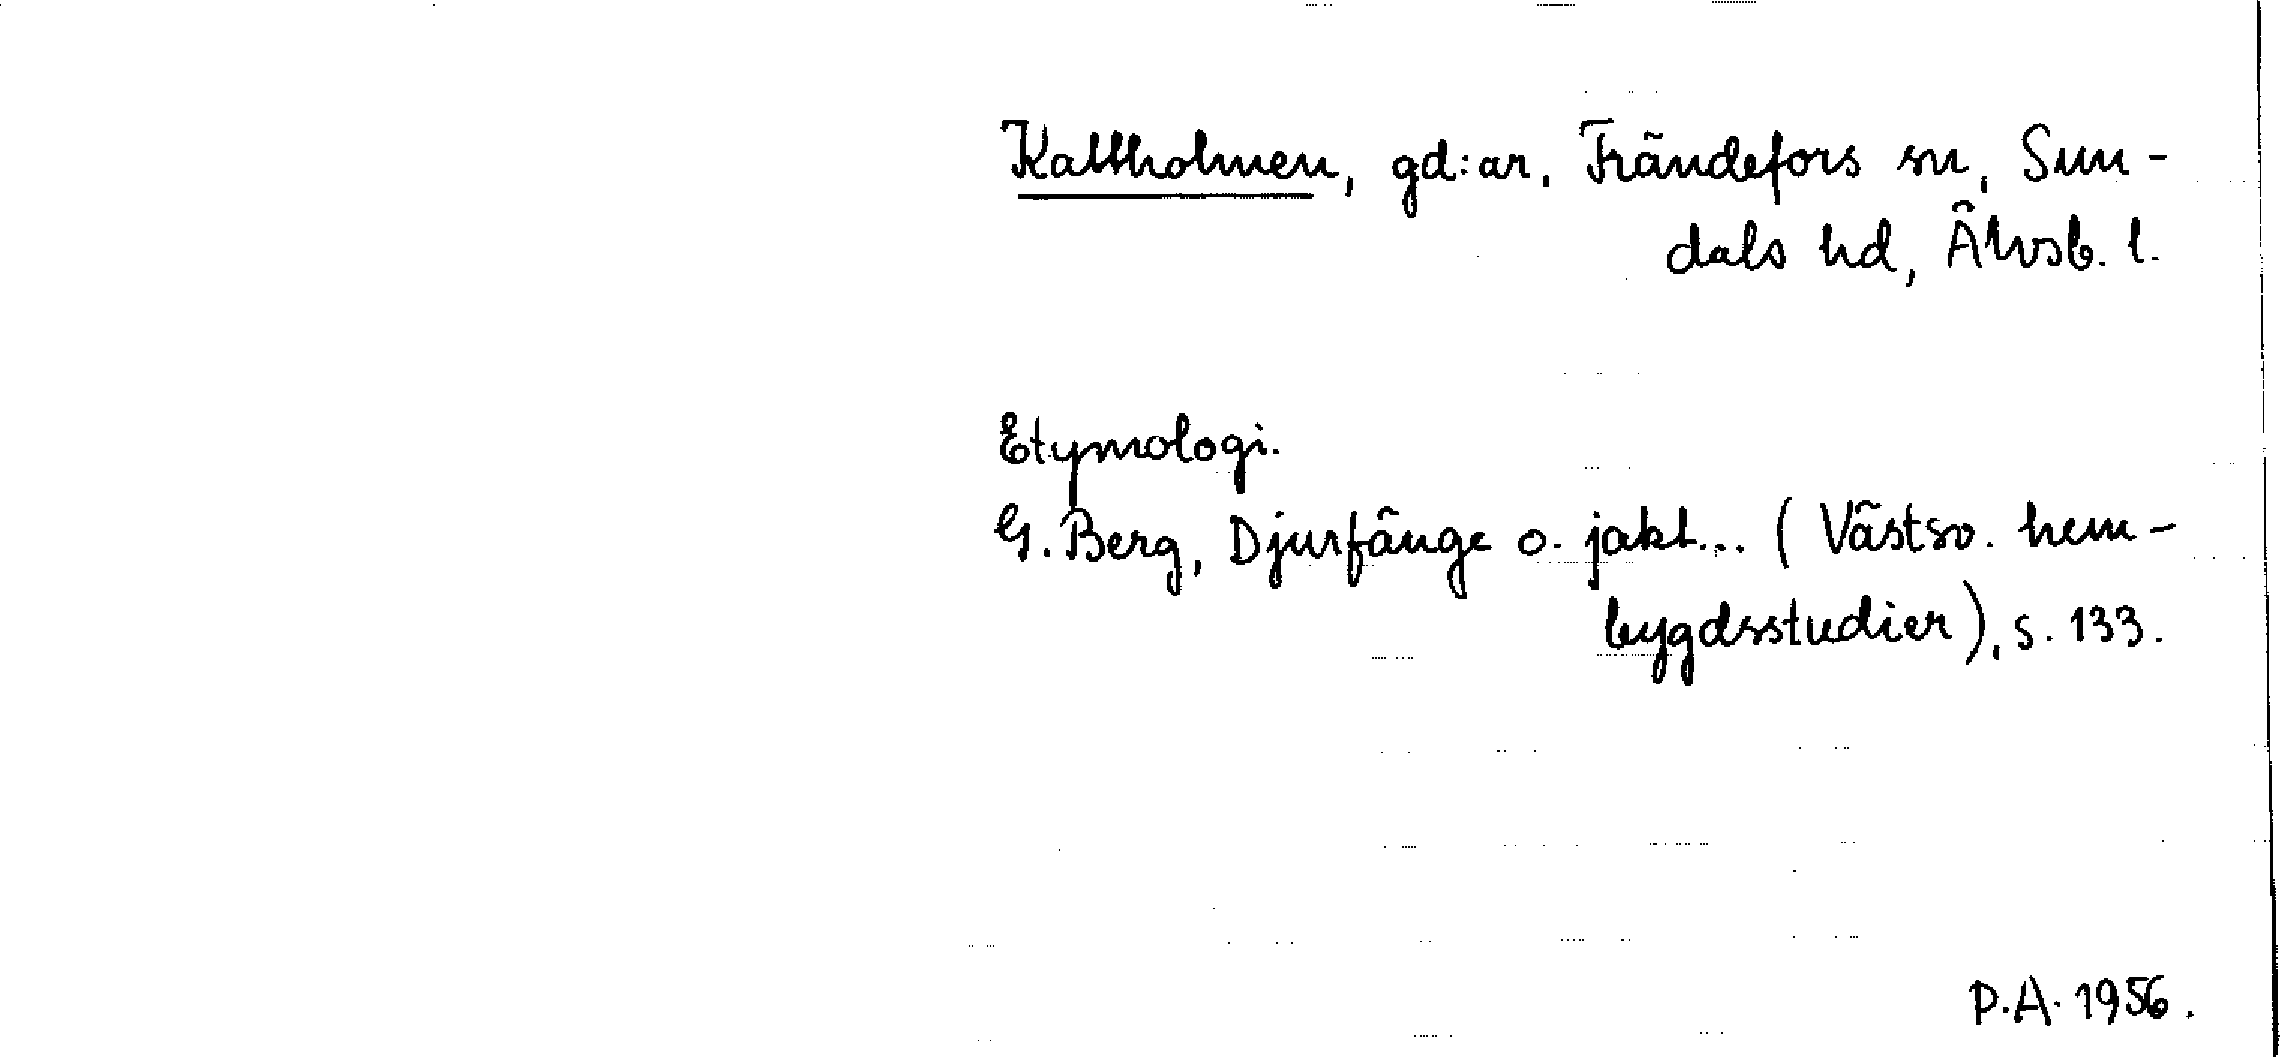 Kattholmen, gd:ar, Frändefors sn, Sun-
dals hd, Älvsb. l.
Etymologi.
G. Berg, Djurfånge o. jakt... (Västsv. hem-
bygdsstudier), s. 133.
P.A. 1956.